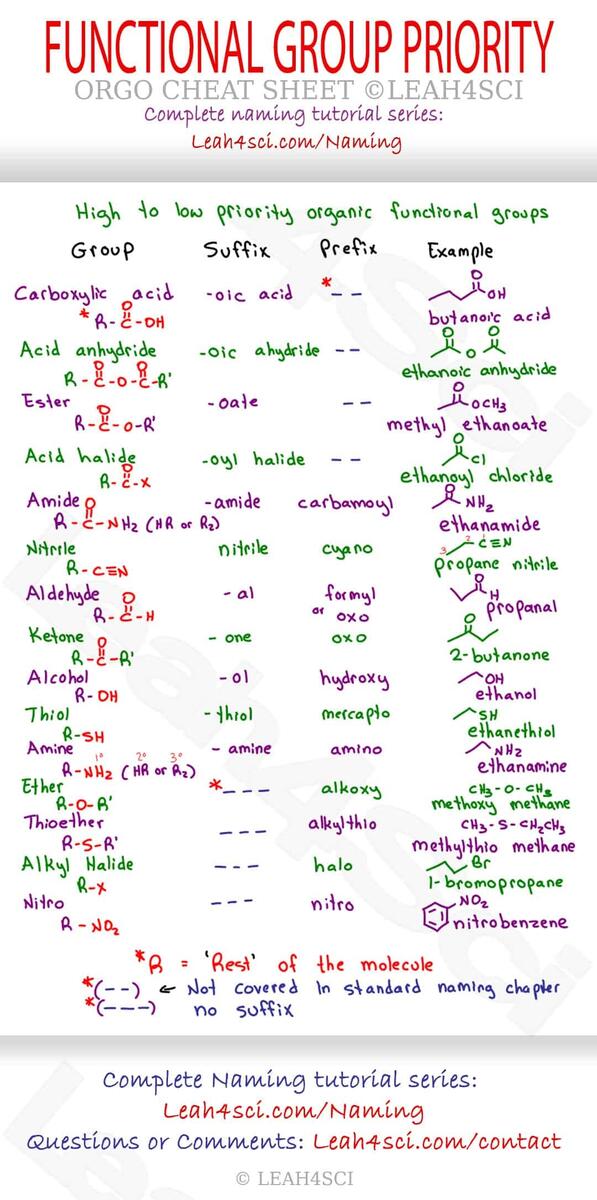 FUNCTIONAL GROUP PRIORITY
ORGO CHEAT SHEET ©LEAH4SCI
Complete naming tutorial series:
Leah4sci.com/Naming
High to low priority organic functional groups
Group Suffix Prefix Example
Carboxylic acid -oic acid *-- OH
*R-C-OH O butanoic acid
Acid anhydride -oic ahydride -- O O O
R-C-O-C-R' O O ethanoic anhydride
Ester -oate -- O OCH3
R-C-O-R' O methyl ethanoate
Acid halide -oyl halide -- O Cl
R-C-X O ethanoyl chloride
Amide -amide carbamoyl O NH2
R-C-NH2 (HR or R2) O ethanamide
Nitrile nitrile cyano 3 2 1 C≡N
R-C≡N propane nitrile
Aldehyde -al formyl or oxo O H
R-C-H O propanal
Ketone -one oxo O
R-C-R' O 2-butanone
Alcohol -ol hydroxy OH
R-OH ethanol
Thiol -thiol mercapto SH
R-SH ethanethiol
Amine -amine amino NH2
1° 2° 3°
R-NH2 (HR or R2) ethanamine
Ether *--- alkoxy CH3-O-CH3
R-O-R' methoxy methane
Thioether --- alkylthio CH3-S-CH2CH3
R-S-R' methylthio methane
Alkyl Halide --- halo Br
R-X 1-bromopropane
Nitro --- nitro NO2
R-NO2 nitrobenzene
*R = 'Rest' of the molecule
*(--) ← Not covered in standard naming chapter
*(---) no suffix
Complete Naming tutorial series:
Leah4sci.com/Naming
Questions or Comments: Leah4sci.com/contact
© LEAH4SCI
Leah4Sci